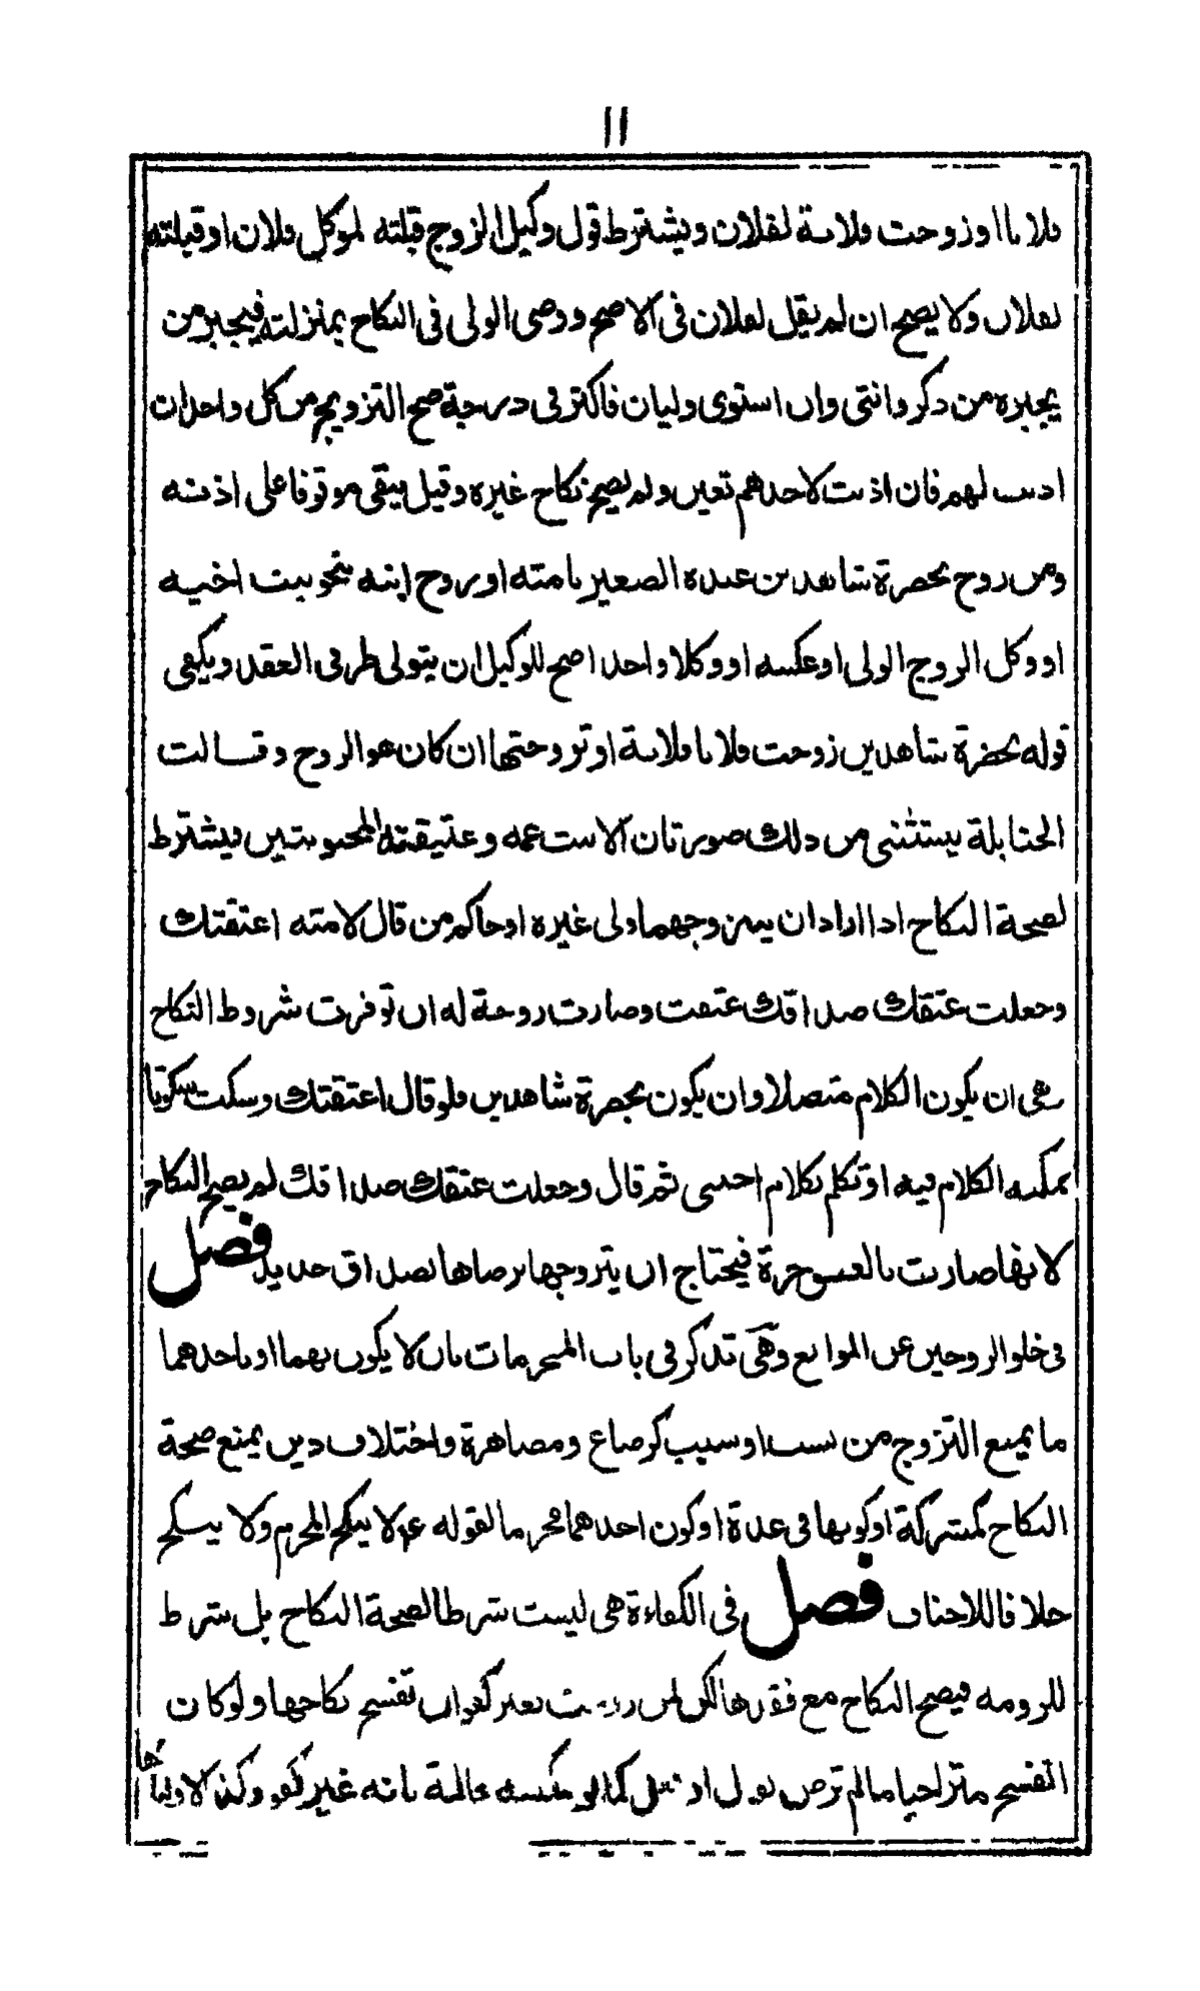 ١١
فلانا او زوجت فلانة لفلان ويشترط قول وكيل الزوج قبلته لموكلى فلان او قبلته
لفلان ولا يصح ان لم يقل لفلان فى الاصح ووصى الولى فى النكاح بمنزلته فيجبر من
يجبره من ذكر وانثى وان استوى وليان فاكثر فى درجة صح التزويج من كل واحد ان
اذنت لهم فان اذنت لاحدهم تعين ولم يصح نكاح غيره وقيل يبقى موقوفا على اذنه
ومن زوج بحضرة شاهدين عبده الصغير بامته او زوج ابنه بنحو بنت اخيه
او وكل الزوج الولى او عكسه او وكلا واحدا صح للوكيل ان يتولى طرفى العقد ويكفى
قوله بحضرة شاهدين زوجت فلانا فلانة او تزوجتها ان كان هو الزوج وقالت
الحنابلة يستثنى من ذلك صورتان الا بنت عمه وعتيقته المجنونتين فيشترط
لصحة النكاح اذا اراد ان يتزوجهما ولى غيره او حاكم من قال لامته اعتقتك
وجعلت عتقك صداقك عتقت وصارت زوجة له ان توفرت شروط النكاح
بقى ان يكون الكلام متصلا وان يكون بحضرة شاهدين فلو قال اعتقتك وسكت سكوتا
يمكنه الكلام فيه او تكلم بكلام اجنبى ثم قال وجعلت عتقك صداقك لم يصح النكاح
لانها صارت بالعتق حرة فيحتاج ان يتزوجها برضاها بصداق جديد فصل
فى خلو الزوجين عن الموانع وهى تذكر فى باب المحرمات بان لا يكون بهما او باحدهما
ما يمنع التزوج من نسب او سبب كرضاع ومصاهرة واختلاف دين يمنع صحة
النكاح كمشركة او كونها فى عدة او كون احدهما محرما لقوله عم لا ينكح المحرم ولا ينكح
خلافا للاحناف فصل فى الكفاءة هى ليست شرطا لصحة النكاح بل شرط
للزومه فيصح النكاح مع فقدها لكن لمن بغير كفو ان تفسخ نكاحها ولو كان
الفسخ متراخيا ما لم ترض بقول او عالمة بانه غير كفو وكذا لاوليائها